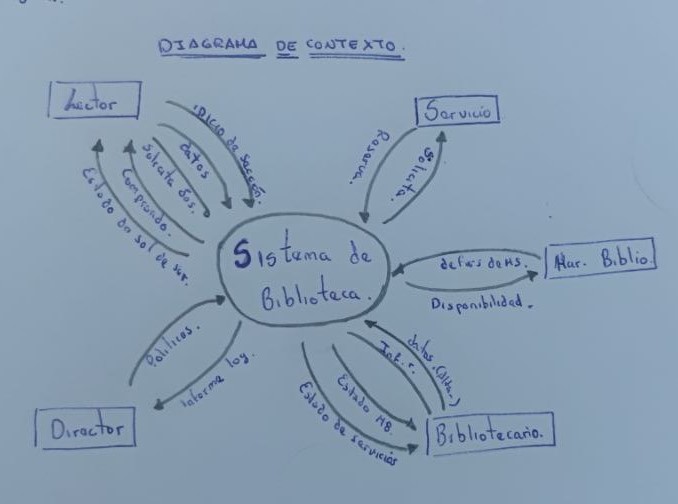 DIAGRAMA DE CONTEXTO.
Lector
Servicio
inicio de sección.
datos
solicita Ses.
Comprando.
Estado de sol de ser.
Reserva.
Solicita.
Sistema de
Biblioteca.
Mar. Biblio.
Disponibilidad.
Politicas.
informe
Director
datos
Inf. r.
Estado MB
Estado de servicios
Bibliotecario.